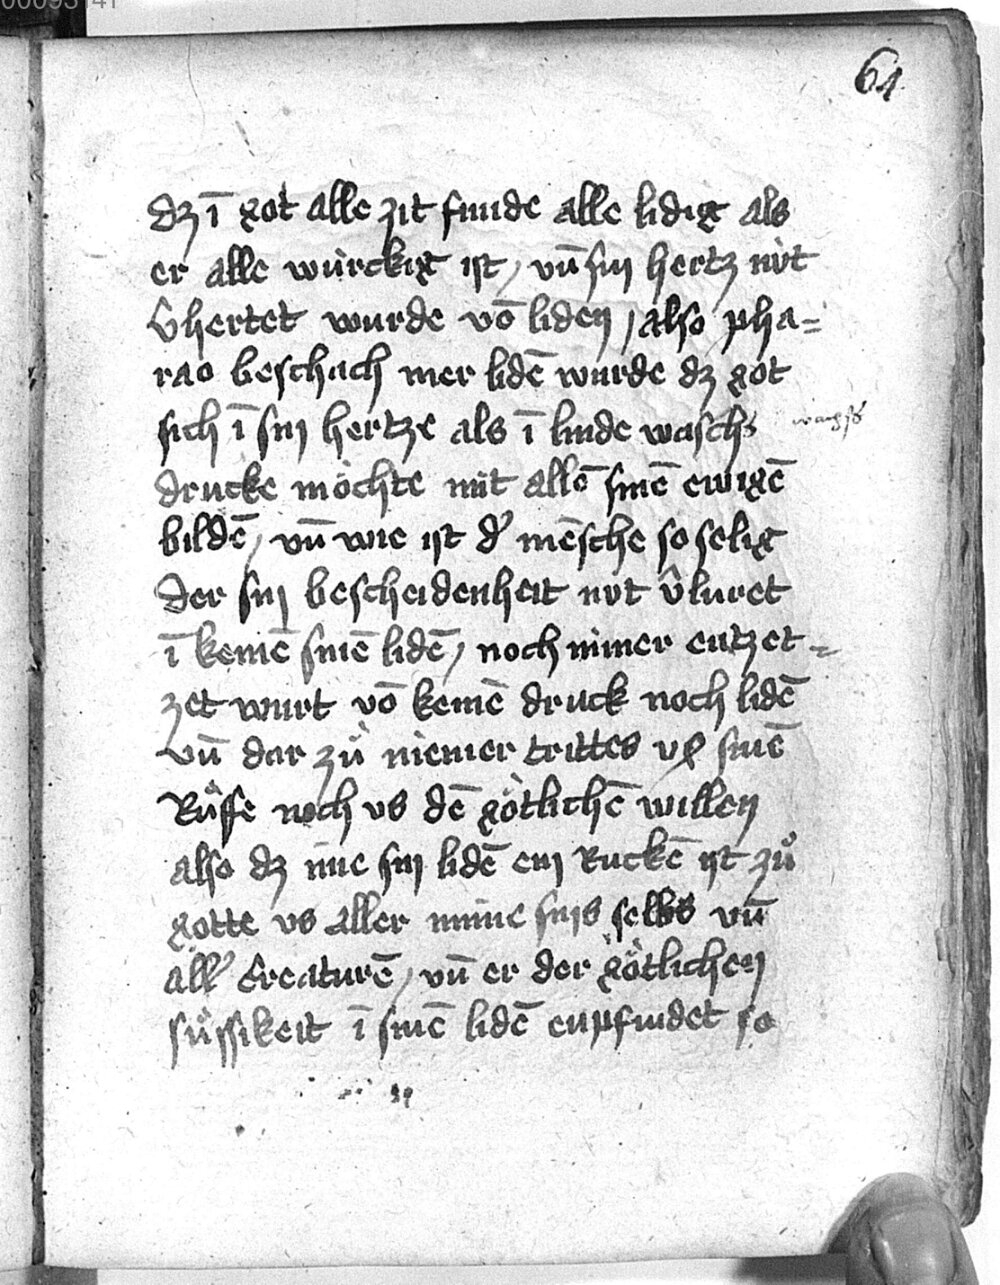 00093141
64
dz ī got alle zit finde alle lidig als
er alle würckig ist / vn̄ sin hertz nüt
v̾hertet wurde vō liden / also pha=
rao beschach mer lidē wurde dz got
sich ī sin hertze als ī linde waschs
drucke möchte mit allē sinē ewigē
bildē / vn̄ wie ist d̾ mēsche so selig
der sin bescheidenheit nüt v̾lüret
ī keinē sinē lidē / noch nimer entzet=
zet wurt vō keinē druck noch lidē
vn̄ dar zuͦ niemer trittes vß sinē
Ruͦffe noch us dē götlichē willen
also dz ime sin lidē ein Ruckē ist zuͦ
gotte us aller minne sins selbs vn̄
all̾ Creaturē / vn̄ er der götlichen
suͤssikeit ī sinē lidē enpfindet so